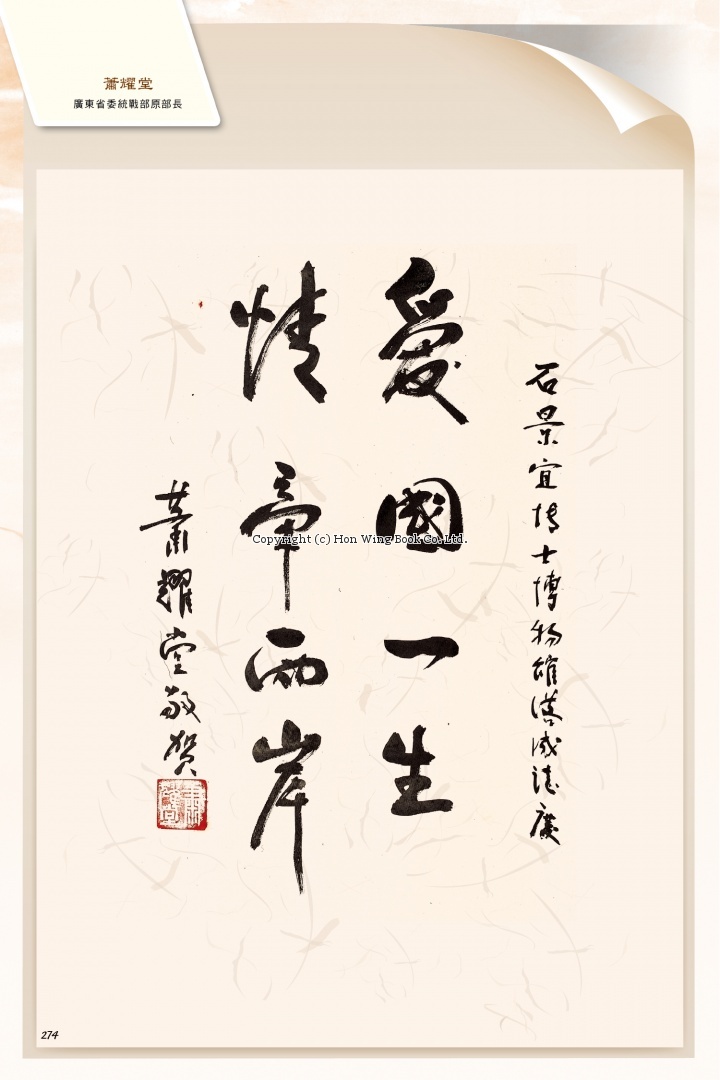 蕭耀堂
廣東省委統戰部原部長
石景宜博士博物館落成誌慶
愛國一生
情牽兩岸
蕭耀堂敬賀
Copyright (c) Hon Wing Book Co. Ltd.
274